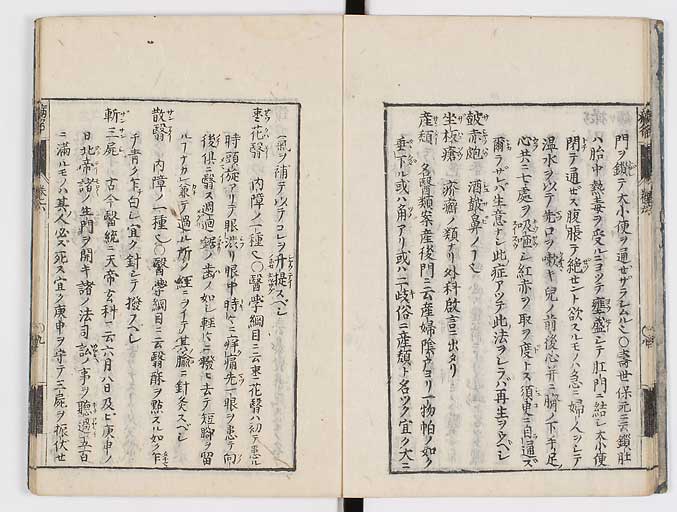 門ヲ鎖テ大小便ヲ通ゼザラシムト〇壽世保元ニ云鎖肚
ハ胎中熱毒ヲ受ルニヨツテ壅盛シテ肛門ニ結シ大小便
閉テ通ゼス腹脹テ絶セント欲スルモノハ急ニ婦人ヲシテ
温水ヲ以テ先口ヲ嗽キ兒ノ前後心并ニ臍ノ下手足
心共ニ七處ヲ吸咂シ紅赤ヲ取ヲ度トス須臾ニ自通ズ
爾ラザレバ生意ナシ此症アツテ此法ヲシラバ再生ヲウベシ
皷赤皰 酒皶鼻ノ
坐板瘡 疥癬ノ類ナリ外科啟言ニ出タリ
産頽 名醫類案産後門ニ云産婦陰戸ヨリ一物帕ノ如ク
垂下ル或ハ角アリ或ハ二岐俗ニ産頽ト名ツク宜ク大ニ
氣ヲ補テ以テコレヲ升提スベシ
棗花翳 内障ノ一種〇醫学綱目ニ云棗花翳ハ初テ患ル
時頭旋アリテ眼澁リ眼中時ニ痛先一眼ヲ患テ向
後倶ニ翳ス周迴鋸ノ歯ノ如シ輕ニ撥去テ短脚ヲ留
ルナカレ兼テ過ル所ノ經ヲイテ其腧ニ針灸スベシ
散翳 内障ノ一種〇醫学綱目ニ云翳酥ヲ點ス如ク乍
チ青ク乍白シ宜ク針シテ撥フベシ
斬三尸 古今醫統ニ天帝玄科ニ云六月八日及ビ庚申ノ
日北帝諸ノ生門ヲ開キ諸ノ法司訟ノ事ヲ聽過五百
ニ滿ルモノハ其人必ズ死ス宜ク庚申ヲ守テ三尸ヲ振伏セ